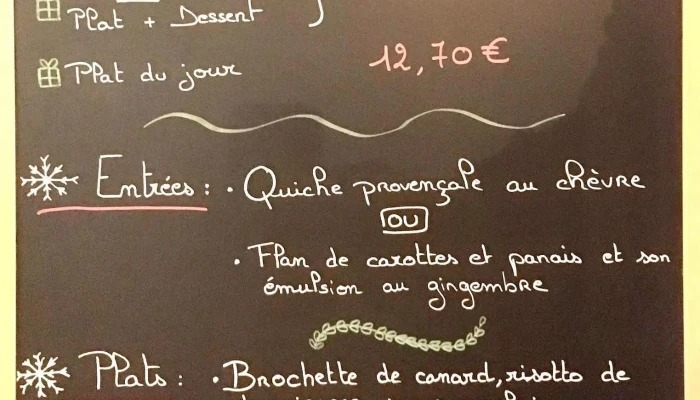 Plat + Dessent
Plat du jour 12,70 €
Entrées : • Quiche provençale au chèvre
OU
• Flan de carottes et panais et son
émulsion au gingembre
Plats : • Brochette de canard, risotto de